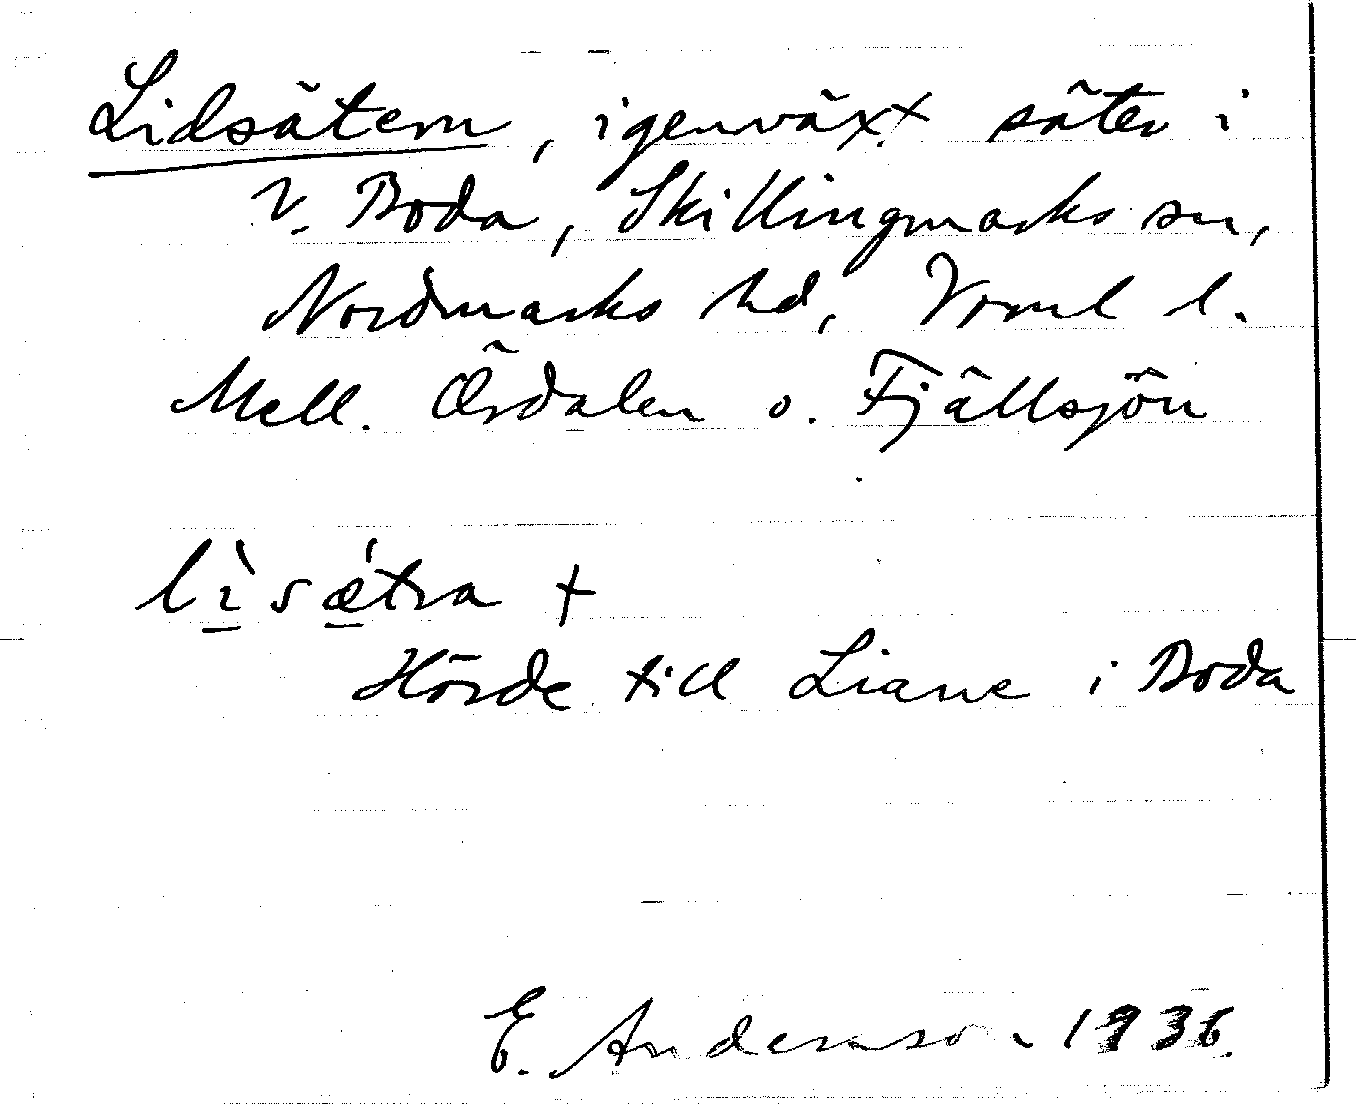 Lidsätern, igenväxt säter i
V. Boda, Skillingmarks sn,
Nordmarks hd, Vrml l.
Mell. Ördalen o. Fjällsjön
lìsǽtra +
Hörde till Liane i Boda
E. Andersson 1936.